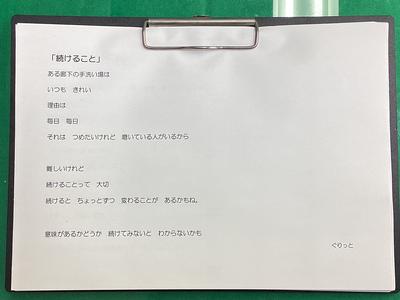 「続けること」
ある廊下の手洗い場は
いつも　きれい
理由は
毎日　毎日
それは　つめたいけれど　磨いている人がいるから
難しいけれど
続けることって　大切
続けると　ちょっとずつ　変わることが　あるかもね。
意味があるかどうか　続けてみないと　わからないかも
ぐりっと